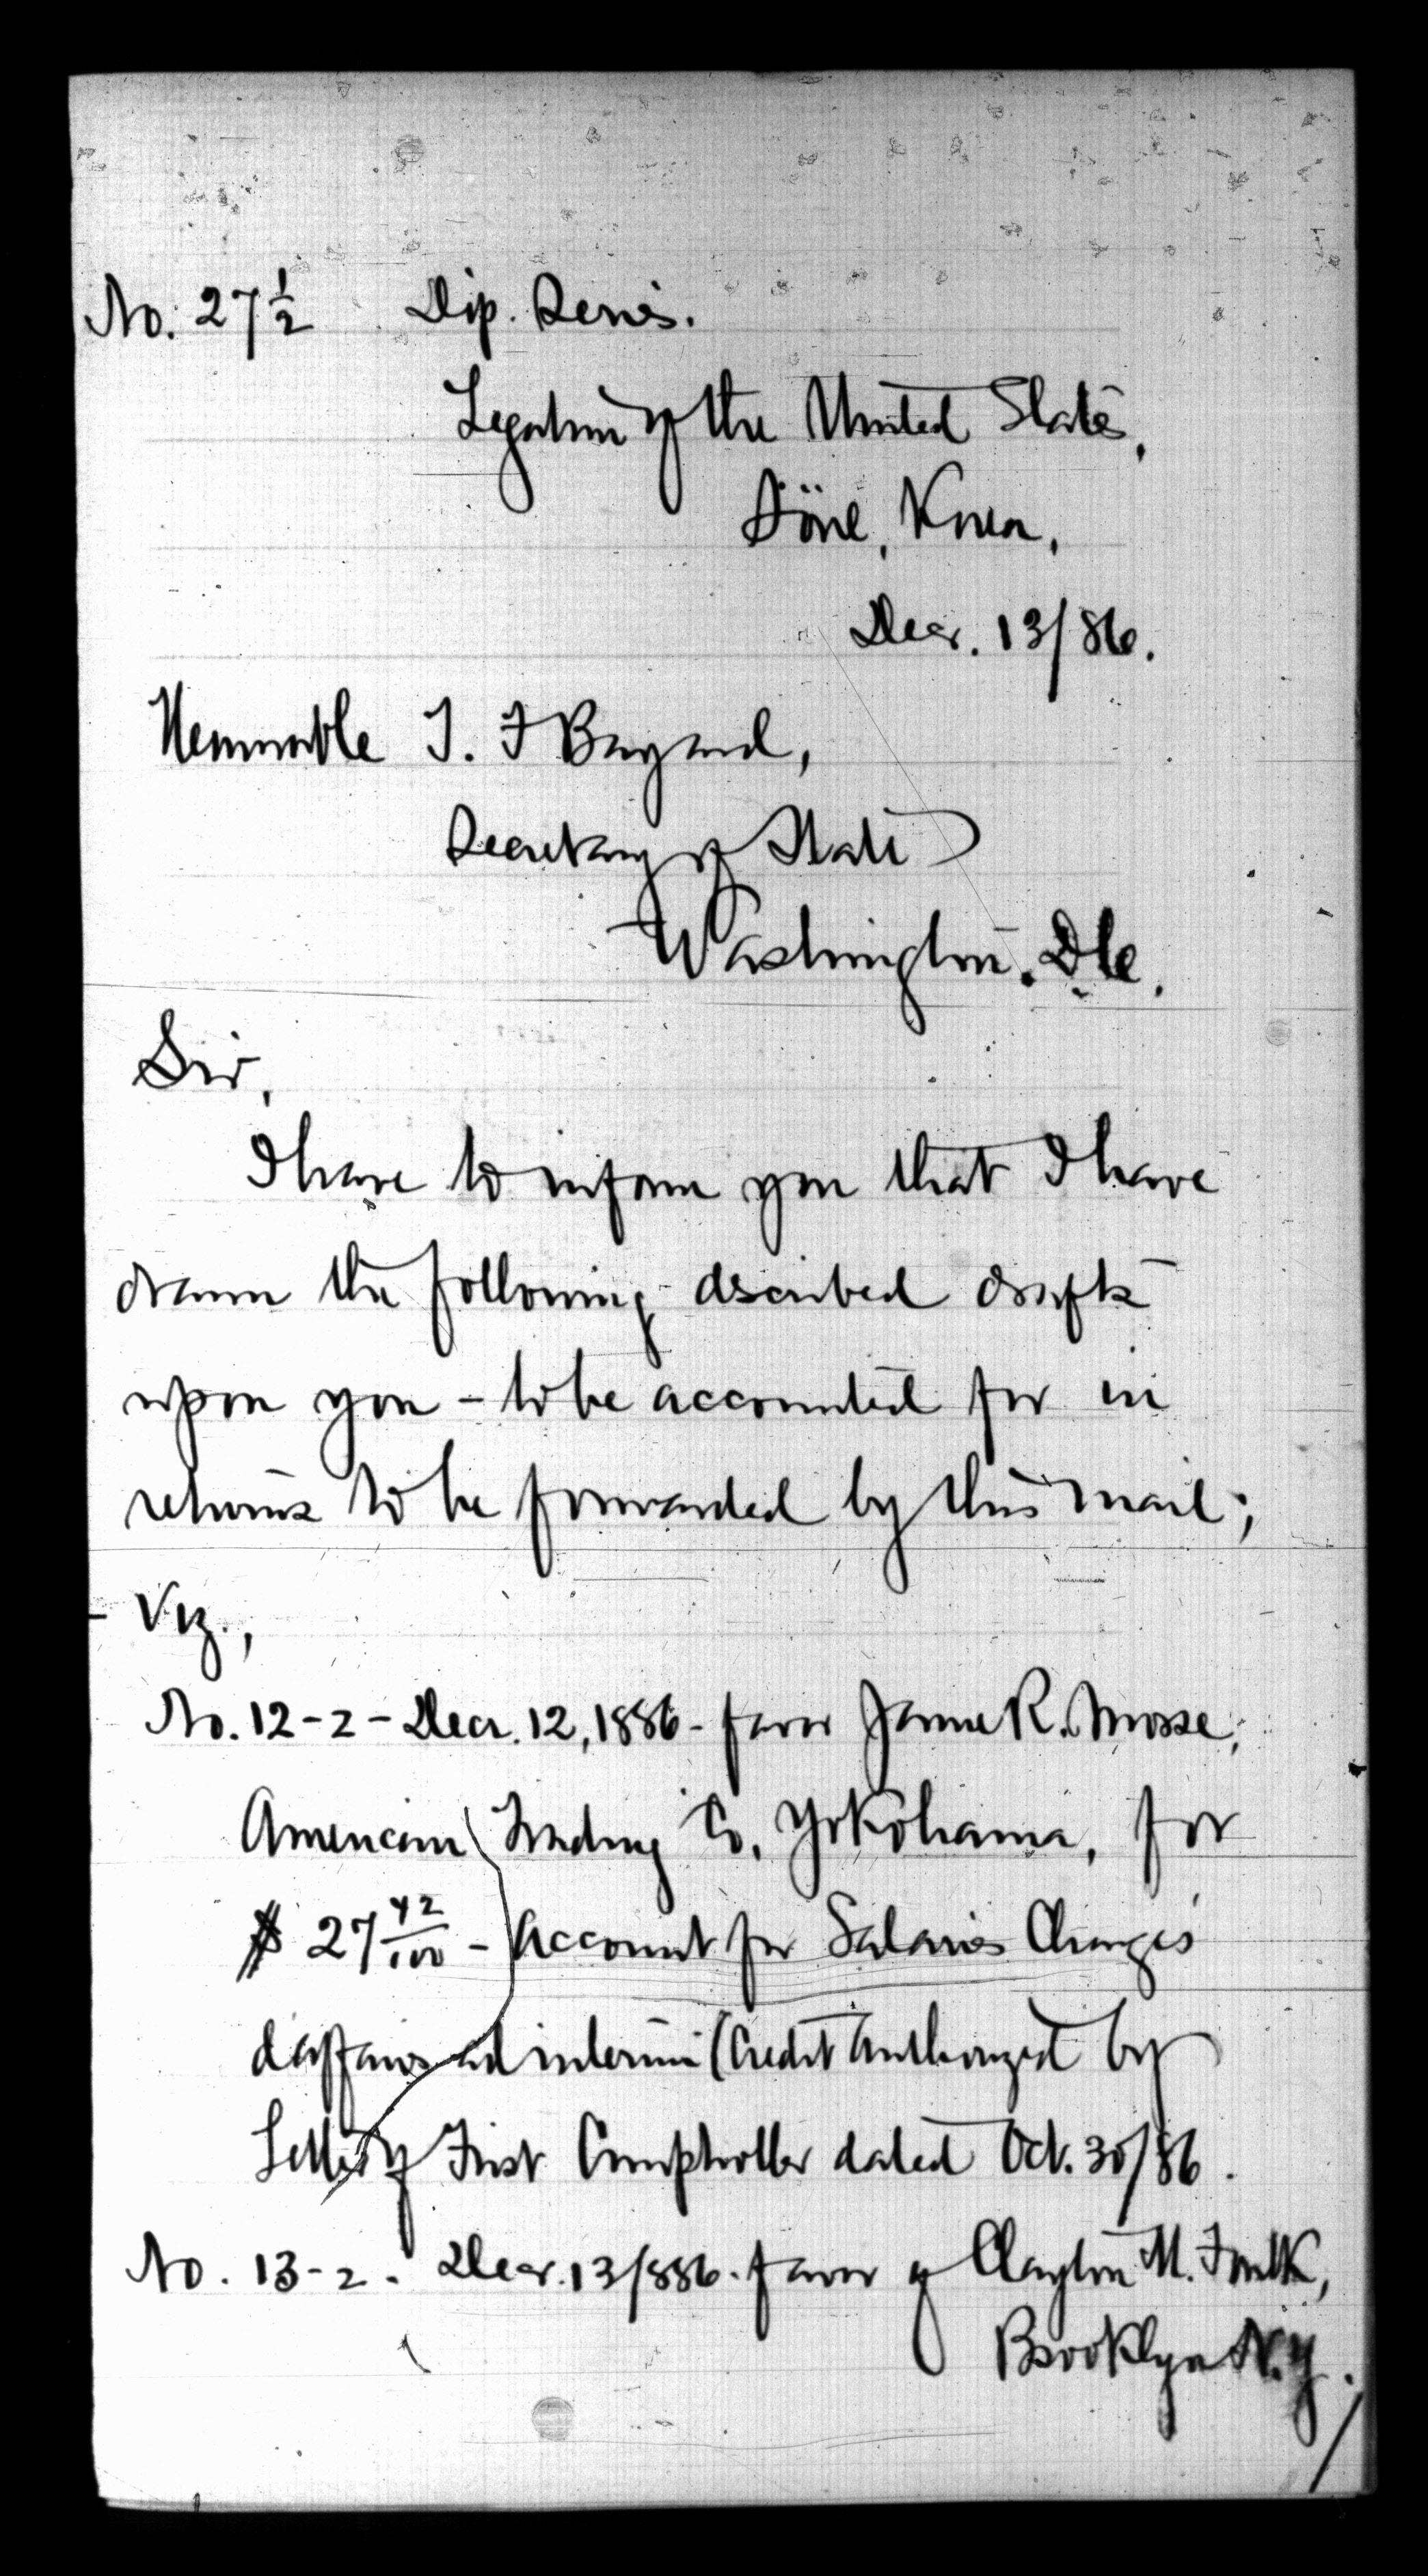 No. 27 1/2 Dip. Series.
Legation of the United States,
Söul, Korea,
Decr. 13/86.
Honorable T. F Bayard,
Secretary of State
Washington. D.C.
Sir,
I have to inform you that I have
drawn the following described drafts
upon you - to be accounted for in
returns to be forwarded by this mail;
- Viz.,
No. 12-2 - Decr. 12, 1886 - favor James R. Morse,
American Trading Co, Yokohama, for
$ 27 42/100 - Account for Salaries Charges
d'affaires ad interim (Credit authorized by
Letter of First Comptroller dated Oct. 30/86.
No. 13-2. Decr. 13/886. favor of Clayton M. Foulk,
Brooklyn N.Y.